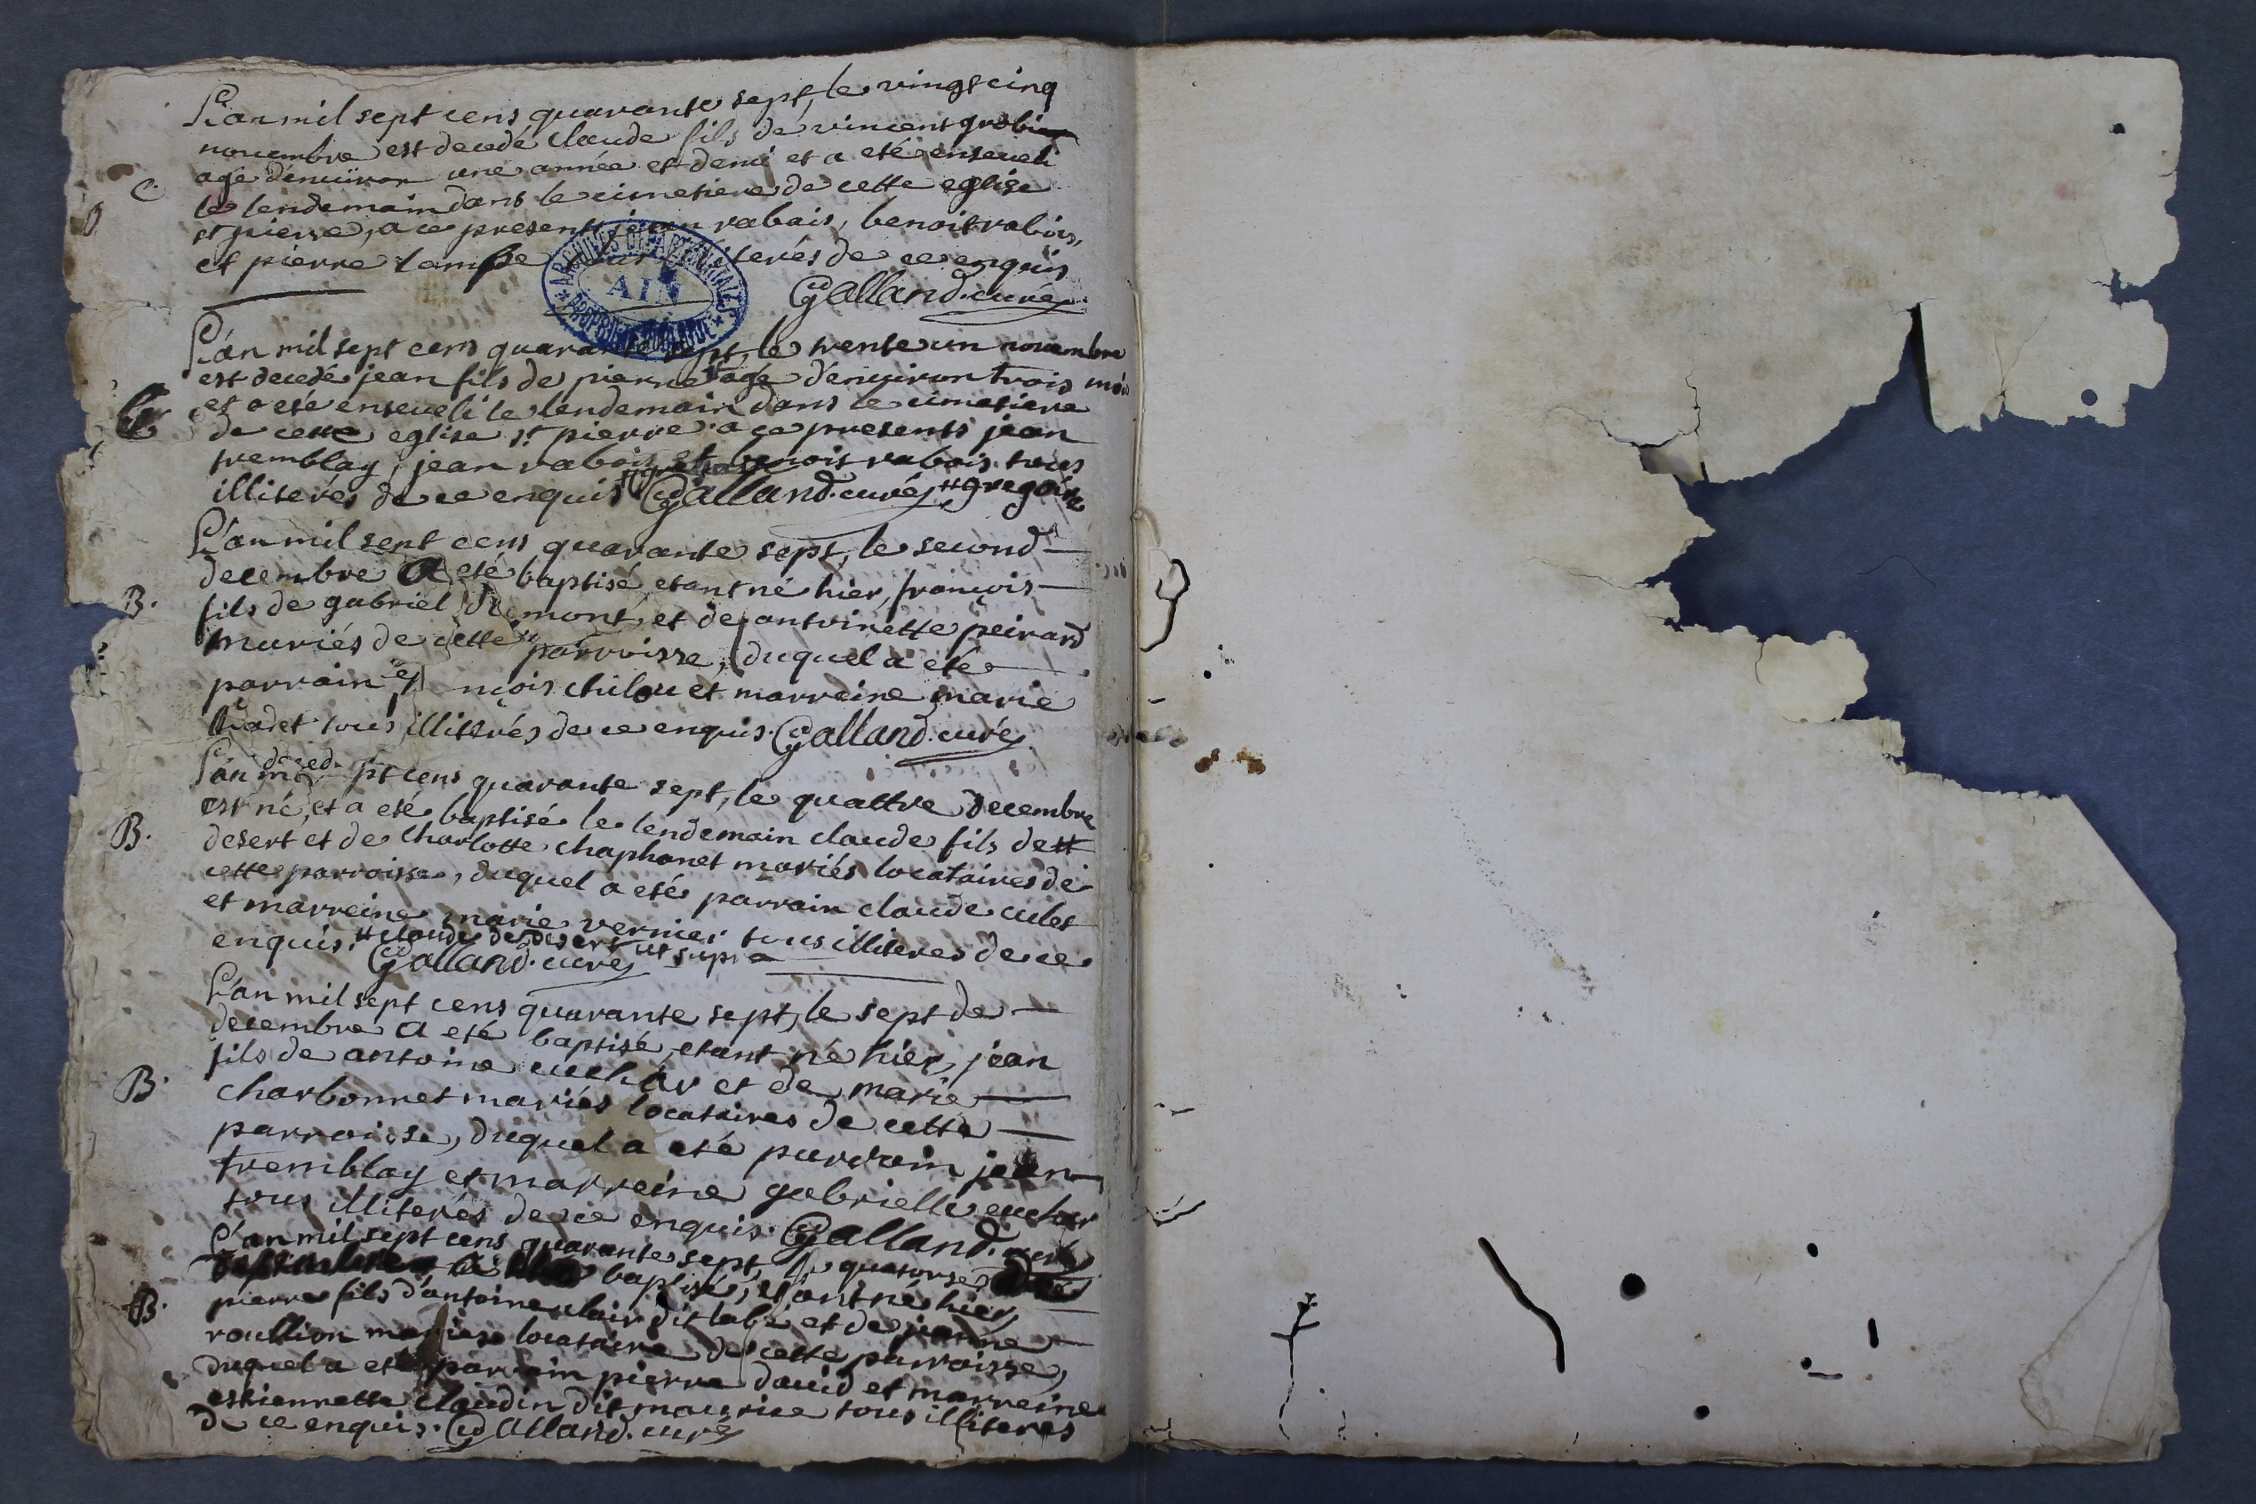 L'an mil sept cens quarante sept, le vingt cinq
novembre est decedé claude fils de vincent grobier
agé d'environ une année et demi et a eté enseveli
C. le lendemain dans le cimetiere de cette eglise
st pierre, a ce presents jean rabais, benoit rabois,
et pierre tous illiterés de ce enquis
Galland. curé
ARCHIVES DEPARTEMENTALES
AIN
PROPRIETE PUBLIQUE
L'an mil sept cens quarante sept, le trente un novembre
est decedé jean fils de pierre # agé d'environ trois mois
et a eté enseveli le lendemain dans le cimetiere
de cette eglise st pierre a ce presents jean
tremblay, jean rabois et benoit rabois tous
illiterés de ce enquis Galland. curé # gregoire
L'an mil sept cens quarante sept, le second
decembre a eté baptisé, etant né hier, françois
B. fils de gabriel et de antoinette peirard
mariés de cette parroisse, duquel a eté
parrain chilou et marreine marie
tous illiterés de ce enquis. Galland. curé
L'an sept cens quarante sept, le quattre decembre
est né, et a eté baptisé le lendemain claude fils de #
B. desert et de charlotte chaphanet mariés locataires de
cette parroisse, duquel a eté parrain claude
et marreine marie vernier tous illiteres de ce
enquis. # claude de desert ut supra
Galland. curé
L'an mil sept cens quarante sept, le sept de
decembre a eté baptisé, etant né hier, jean
fils de antoine cuchar et de marie
B. charbonnet mariés locataires de cette
parroisse, duquel a eté parrain jean
tremblay et marreine gabrielle cuchar
tous illiterés de ce enquis. Galland. curé
L'an mil sept cens quarante sept, le quatorse
baptisé, etant né hier,
B. pierre fils d'antoine clair dit labé et de jeanne
roullion mariés locataire de cette parroisse,
duquel a eté parrain pierre david et marreine
estiennette claudin dit maurice tous illiteres
de ce enquis. Galland. curé